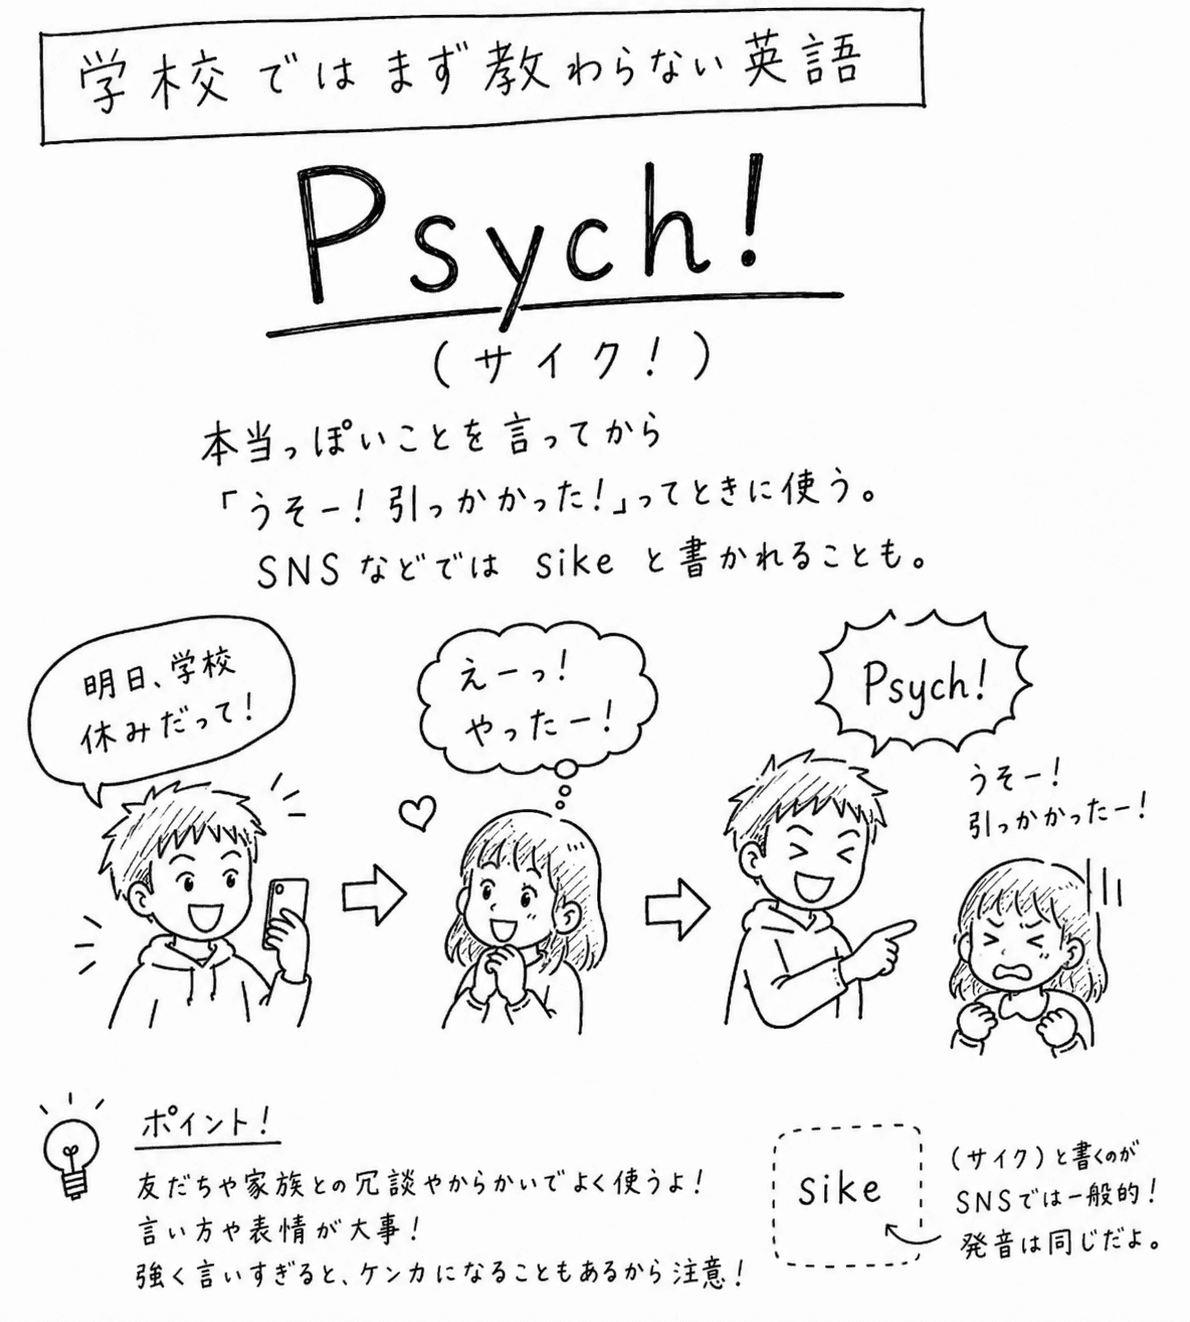 学校ではまず教わらない英語
Psych!
(サイク!)
本当っぽいことを言ってから
「うそー!引っかかった!」ってときに使う。
SNSなどでは sike と書かれることも。
明日、学校
休みだって!
えーっ!
やったー!
Psych!
うそー!
引っかかったー!
ポイント!
友だちや家族との冗談やからかいでよく使うよ!
言い方や表情が大事!
強く言いすぎると、ケンカになることもあるから注意!
sike
(サイク)と書くのが
SNSでは一般的!
発音は同じだよ。